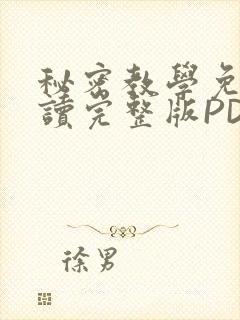 秘密教學免
讀完整版PD
徐男